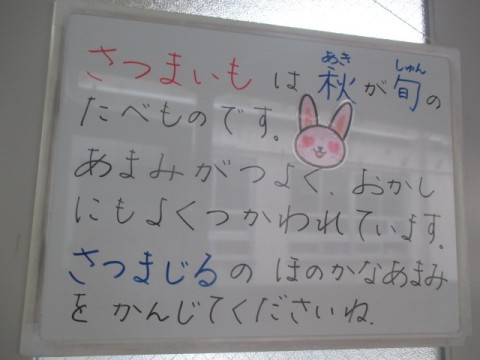 さつまいもは秋が旬の
たべものです。
あまみがつよく、おかし
にもよくつかわれています。
さつまじるのほのかなあまみ
をかんじてくださいね.
あき
しゅん